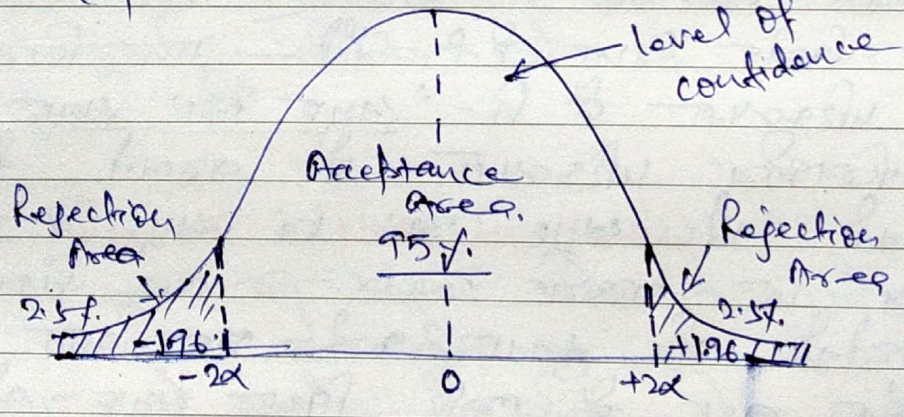 level of
confidence
Acceptance
Area.
95%.
Rejection
Area
2.5%.
-1.96
-2α
0
Rejection
Area
2.5%.
+1.96
+2α